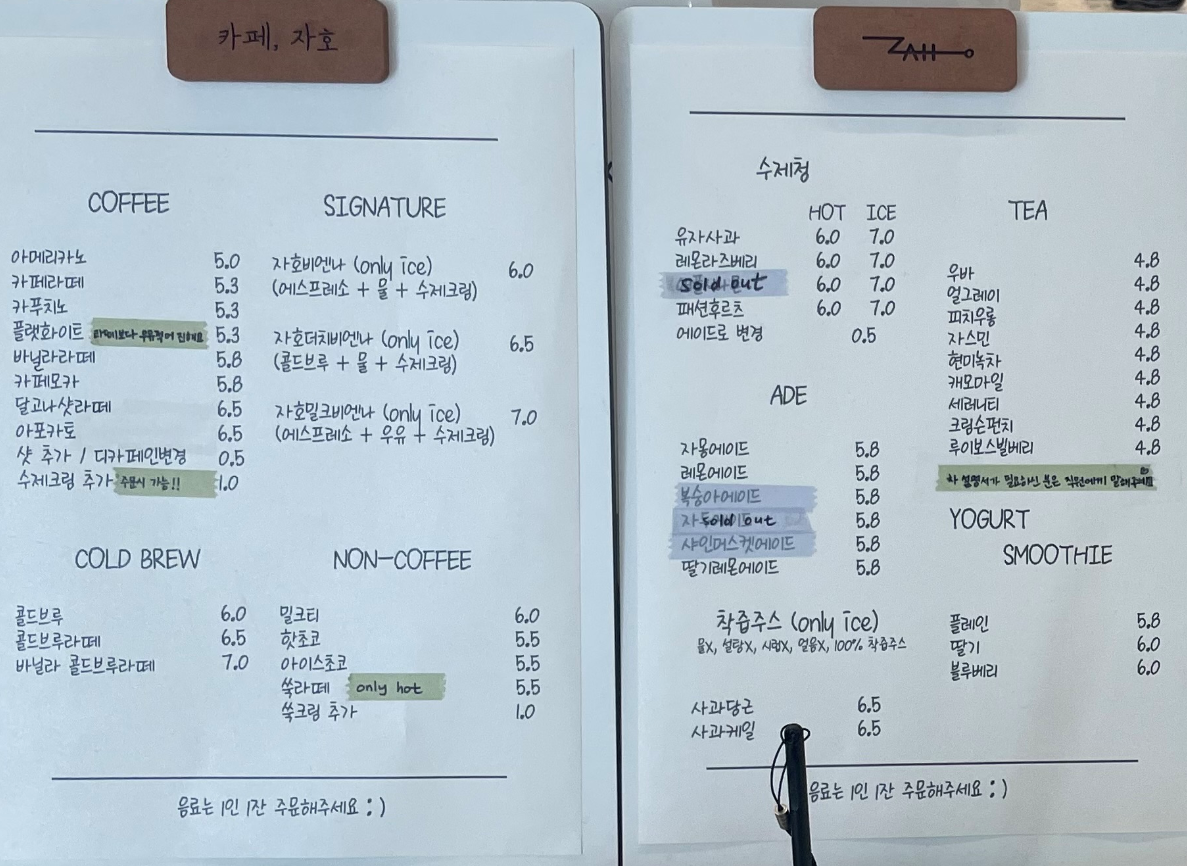 카페, 자호
COFFEE
아메리카노 5.0
카페라떼 5.3
카푸치노 5.3
플랫화이트 라떼보다 우유적어 진해요 5.3
바닐라라떼 5.8
카페모카 5.8
달고나샷라떼 6.5
아포카토 6.5
샷 추가 / 디카페인변경 0.5
수제크림 추가 주문시 가능!! 1.0
SIGNATURE
자호비엔나 (only ice) 6.0
(에스프레소 + 물 + 수제크림)
자호더치비엔나 (only ice) 6.5
(콜드브루 + 물 + 수제크림)
자호밀크비엔나 (only ice) 7.0
(에스프레소 + 우유 + 수제크림)
COLD BREW
콜드브루 6.0
콜드브루라떼 6.5
바닐라 콜드브루라떼 7.0
NON-COFFEE
밀크티 6.0
핫초코 5.5
아이스초코 5.5
쑥라떼 only hot 5.5
쑥크림 추가 1.0
음료는 1인 1잔 주문해주세요 :)
ZAHO
수제청
HOT ICE
유자사과 6.0 7.0
레몬라즈베리 6.0 7.0
sold out 6.0 7.0
패션후르츠 6.0 7.0
에이드로 변경 0.5
ADE
자몽에이드 5.8
레몬에이드 5.8
복숭아에이드 5.8
sold out 5.8
샤인머스켓에이드 5.8
딸기레몬에이드 5.8
착즙주스 (only ice)
물X, 설탕X, 시럽X, 얼음X, 100% 착즙주스
사과당근 6.5
사과케일 6.5
TEA
우바 4.8
얼그레이 4.8
피치우롱 4.8
자스민 4.8
현미녹차 4.8
캐모마일 4.8
세러니티 4.8
크림슨펀치 4.8
루이보스빌베리 4.8
차 설명서가 필요하신 분은 직원에게 말해주세요
YOGURT
SMOOTHIE
플레인 5.8
딸기 6.0
블루베리 6.0
음료는 1인 1잔 주문해주세요 :)